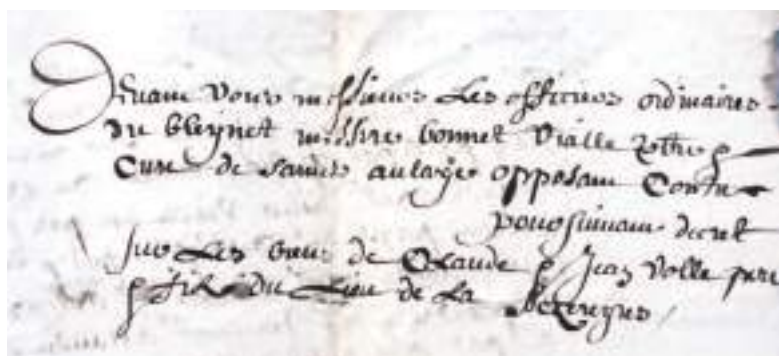 Devant vous messieurs Les officiers ordinaires
du bleynet messire bonnet Vialle
Curé de sainte aulaye opposant Contre
poursuivant decret
sur Les biens de Claude & Jean Volle pere
& filz du Lieu de La